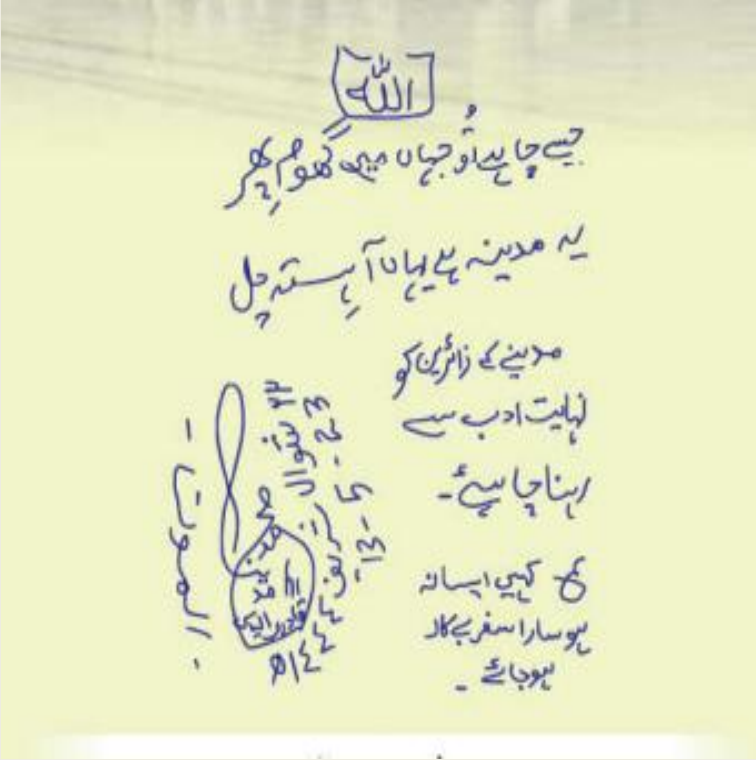 اللہ
جیسے چاہے تُو جہاں میں گھوم پِھر
یہ مدینہ ہے یہاں آہِستہ چل
مدینے کے زائرین کو
نہایت ادب سے
رہنا چاہیئے۔
کہیں ایسا نہ
ہو سارا سفر بےکار
ہوجائے۔
۲۲ شوال شریف ١٤٤٤ھ
13-5-23
- الموت -